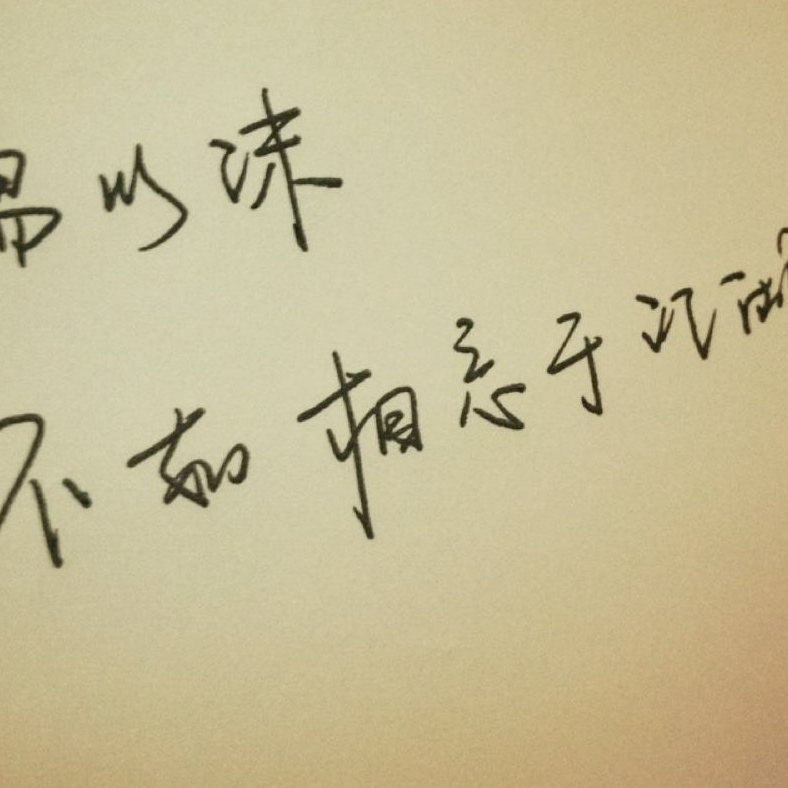 以沫
不如相忘于江湖